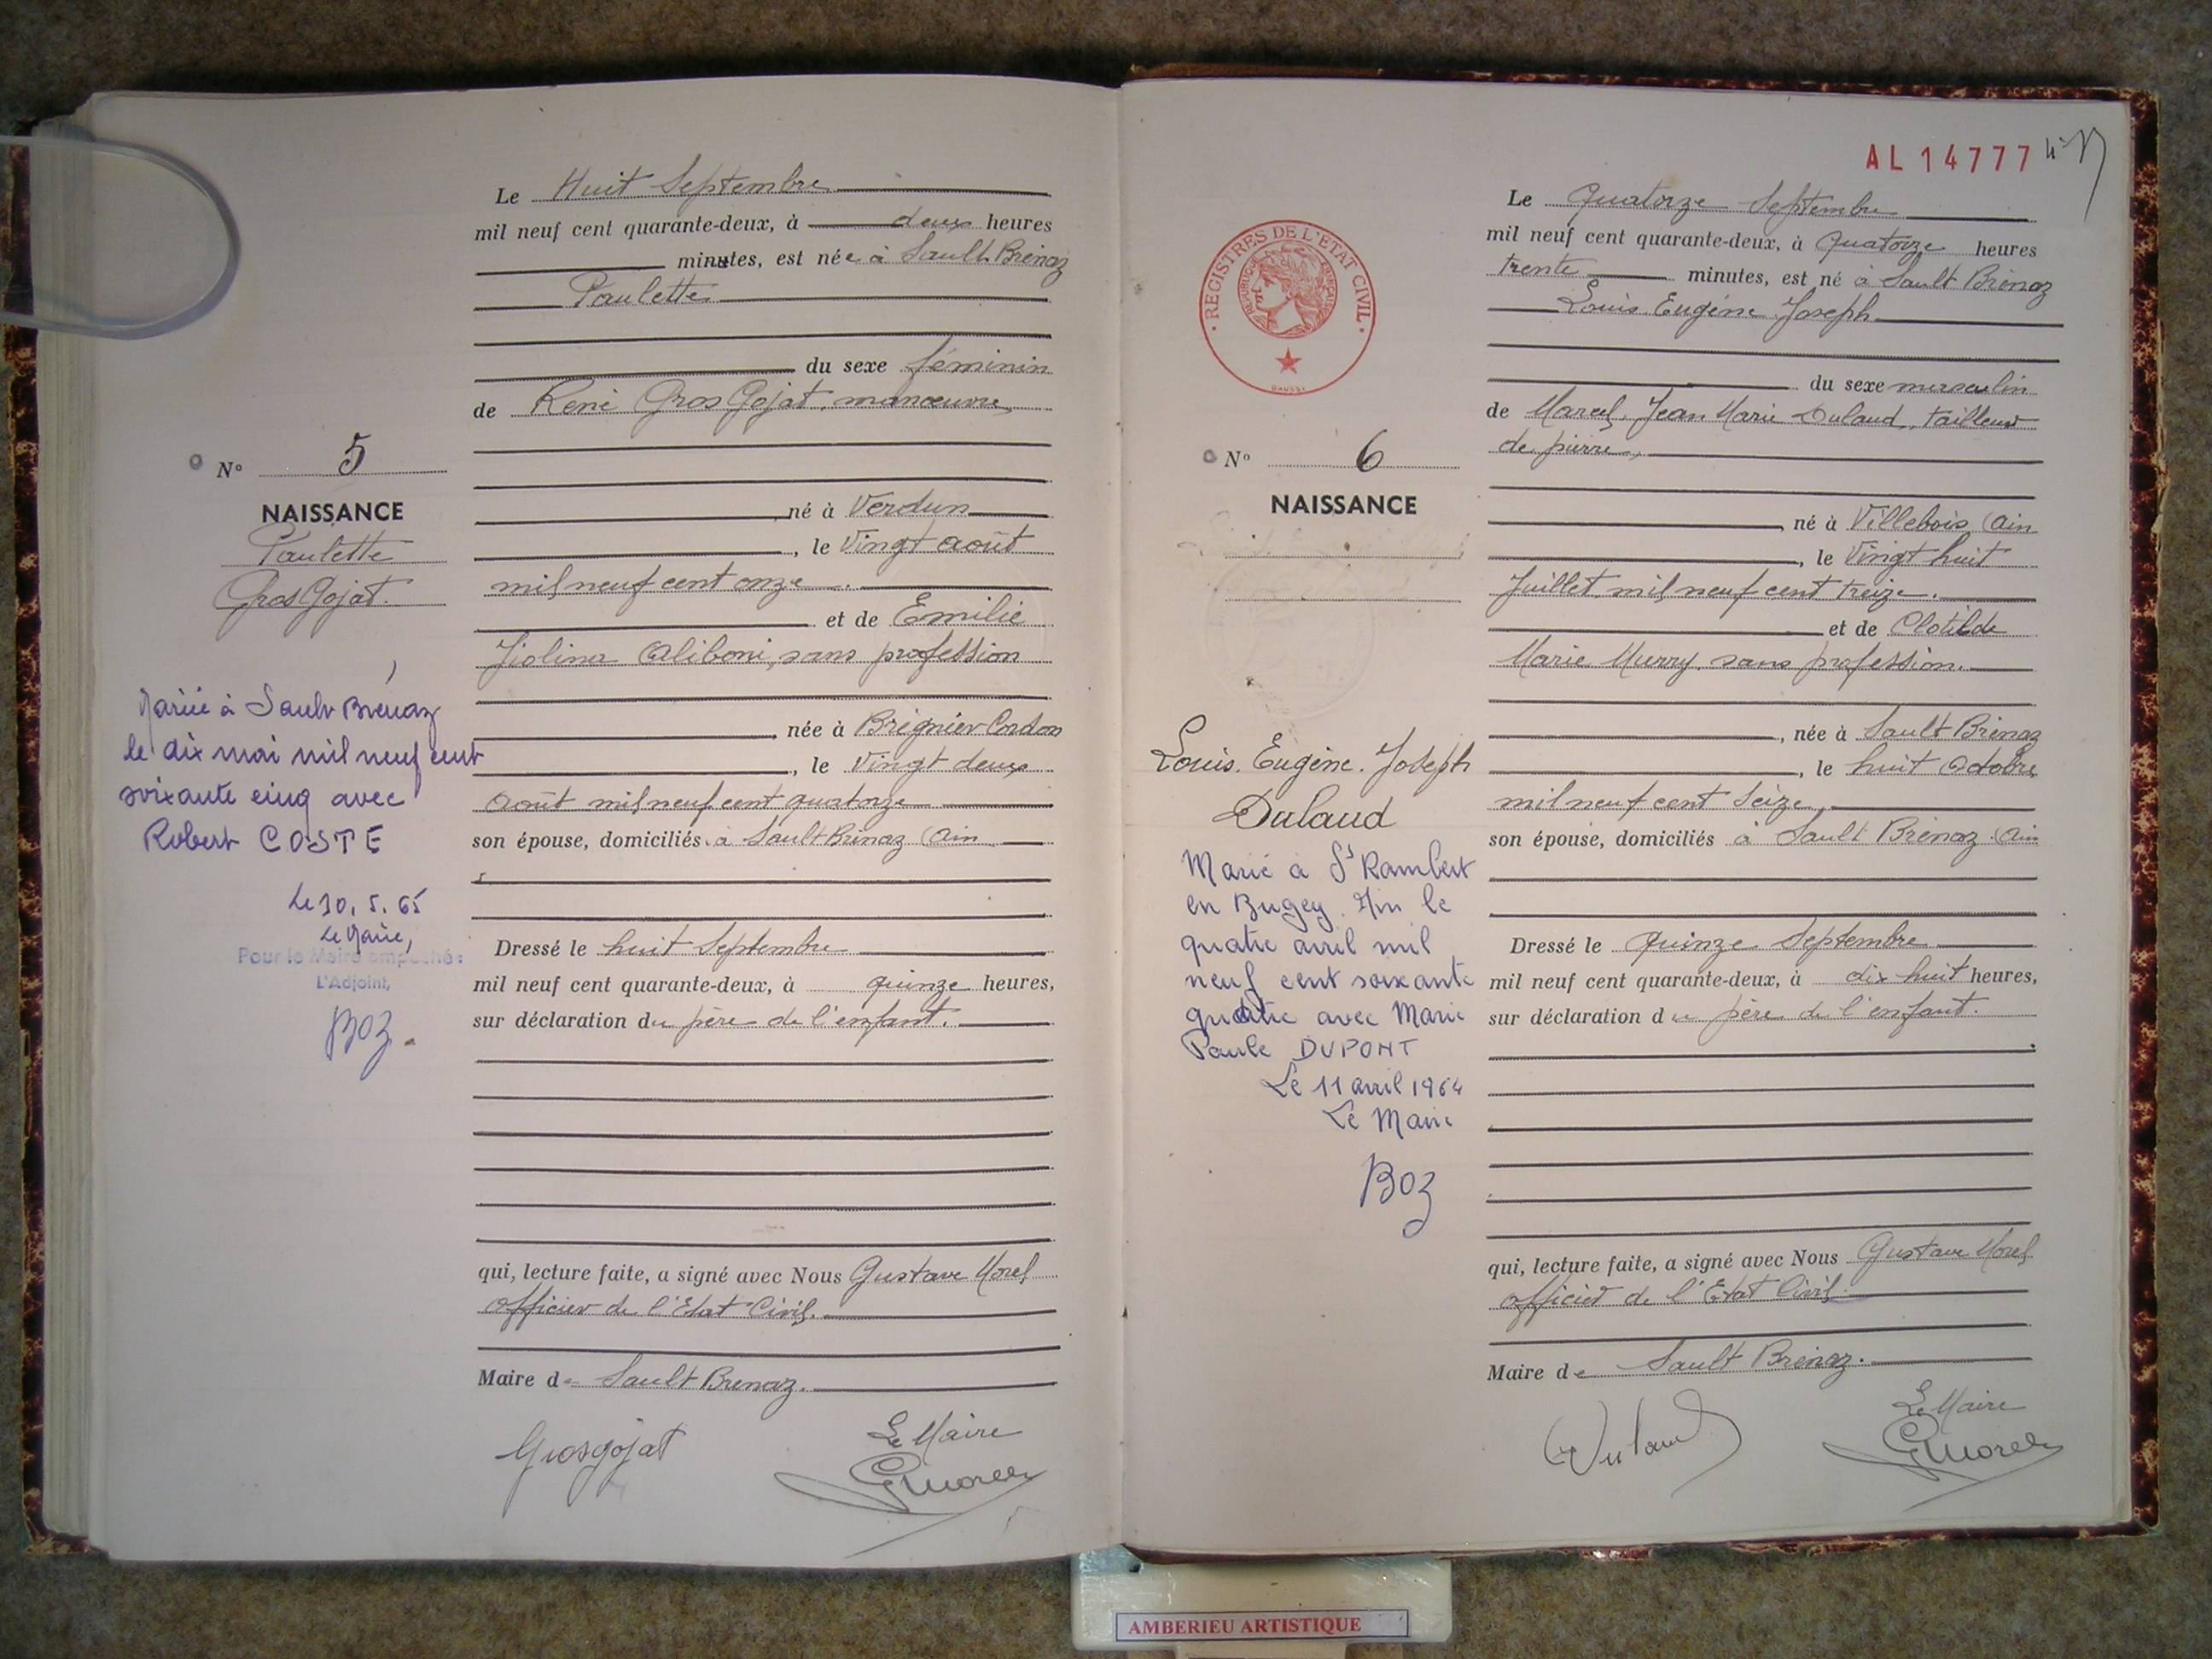 Le Huit Septembre
mil neuf cent quarante-deux, à deux heures
minutes, est née à Sault Brénaz
Paulette
du sexe féminin
de René Gros Gojat, manœuvre,
N° 5
NAISSANCE
Paulette
Gros Gojat.
né à Verdun
, le Vingt août
mil neuf cent onze
et de Emilie
Aliboni, sans profession
née à Brégnier Cordon
, le Vingt deux
Août mil neuf cent quatorze
son épouse, domiciliés à Sault Brénaz (Ain
Dressé le huit Septembre
mil neuf cent quarante-deux, à quinze heures,
sur déclaration du père de l'enfant.
qui, lecture faite, a signé avec Nous Gustave Morel
officier de l'Etat Civil.
Maire de Sault Brenaz.
Grosgojat
Le Maire
GMorel
Mariée à Sault Brénaz
le dix mai mil neuf cent
soixante cinq avec
Robert COSTE
Le 10. 5. 65
Le Maire,
Pour le Maire empêché:
L'Adjoint,
BOZ
AL 14777
REGISTRES DE L'ETAT CIVIL
Le Quatorze Septembre
mil neuf cent quarante-deux, à Quatorze heures
trente minutes, est né à Sault Brénaz
Louis Eugène Joseph
du sexe masculin
de Marcel, Jean Marie Dulaud, tailleur
de pierre,
N° 6
NAISSANCE
né à Villebois (Ain
, le Vingt huit
Juillet mil neuf cent treize.
et de Clotilde
Marie Murry, sans profession.
, née à Sault Brénaz
, le huit Octobre
mil neuf cent seize,
son épouse, domiciliés à Sault Brénaz (Ain
Dressé le Quinze Septembre
mil neuf cent quarante-deux, à dix huit heures,
sur déclaration du père de l'enfant.
qui, lecture faite, a signé avec Nous Gustave Morel
officier de l'Etat Civil
Maire de Sault Brénaz.
Dulaud
Le Maire
GMorel
Louis. Eugène. Joseph
Dulaud
Marié à St Rambert
en Bugey Ain le
quatre avril mil
neuf cent soixante
quatre avec Marie
Paule DUPONT
Le 11 avril 1964
Le Maire
BOZ
AMBERIEU ARTISTIQUE